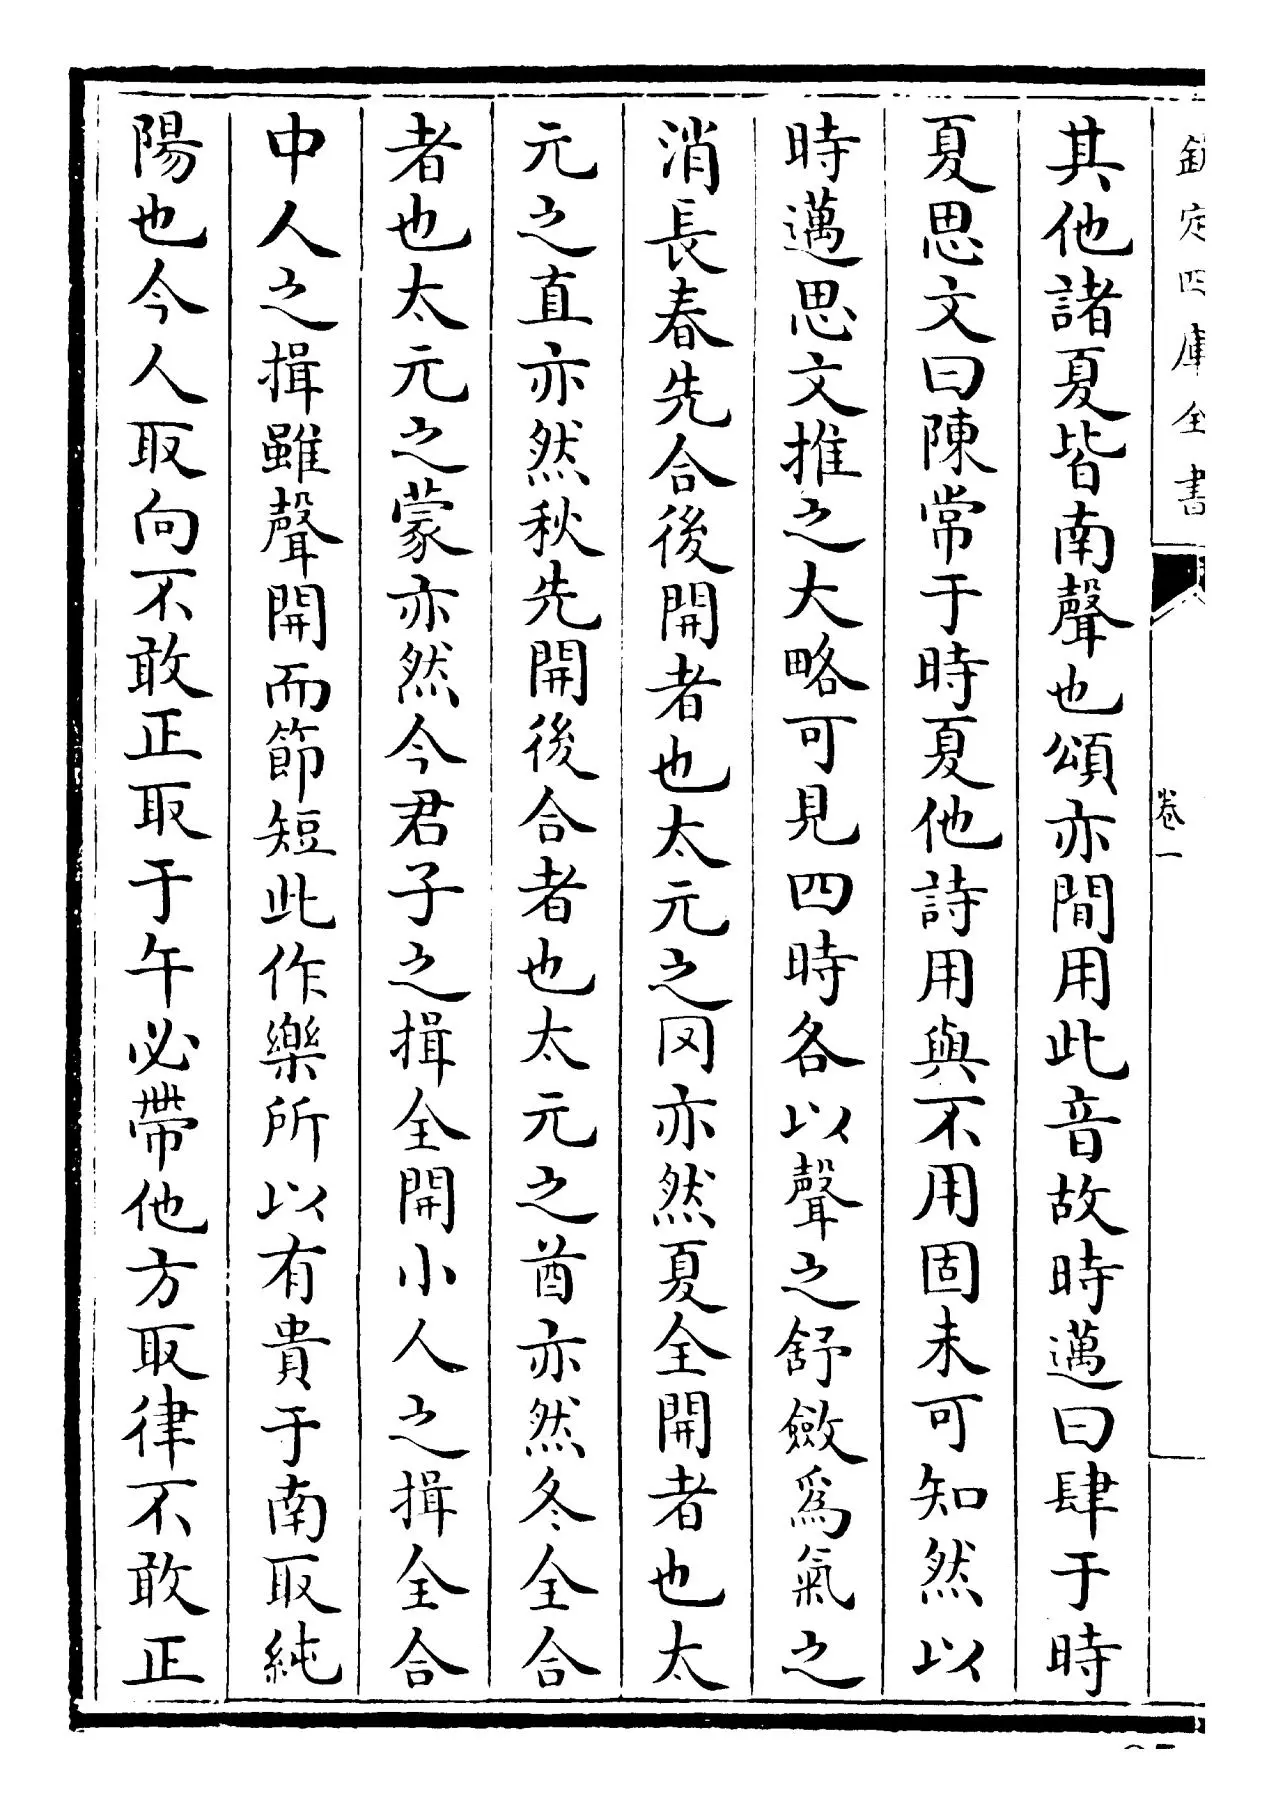 欽定四庫全書
卷一
其他諸夏皆南聲也頌亦閒用此音故時邁曰肆于時
夏思文曰陳常于時夏他詩用與不用固未可知然以
時邁思文推之大略可見四時各以聲之舒斂爲氣之
消長春先合後開者也太元之罔亦然夏全開者也太
元之直亦然秋先開後合者也太元之酋亦然冬全合
者也太元之蒙亦然今君子之揖全開小人之揖全合
中人之揖雖聲開而節短此作樂所以有貴于南取純
陽也今人取向不敢正取于午必帶他方取律不敢正